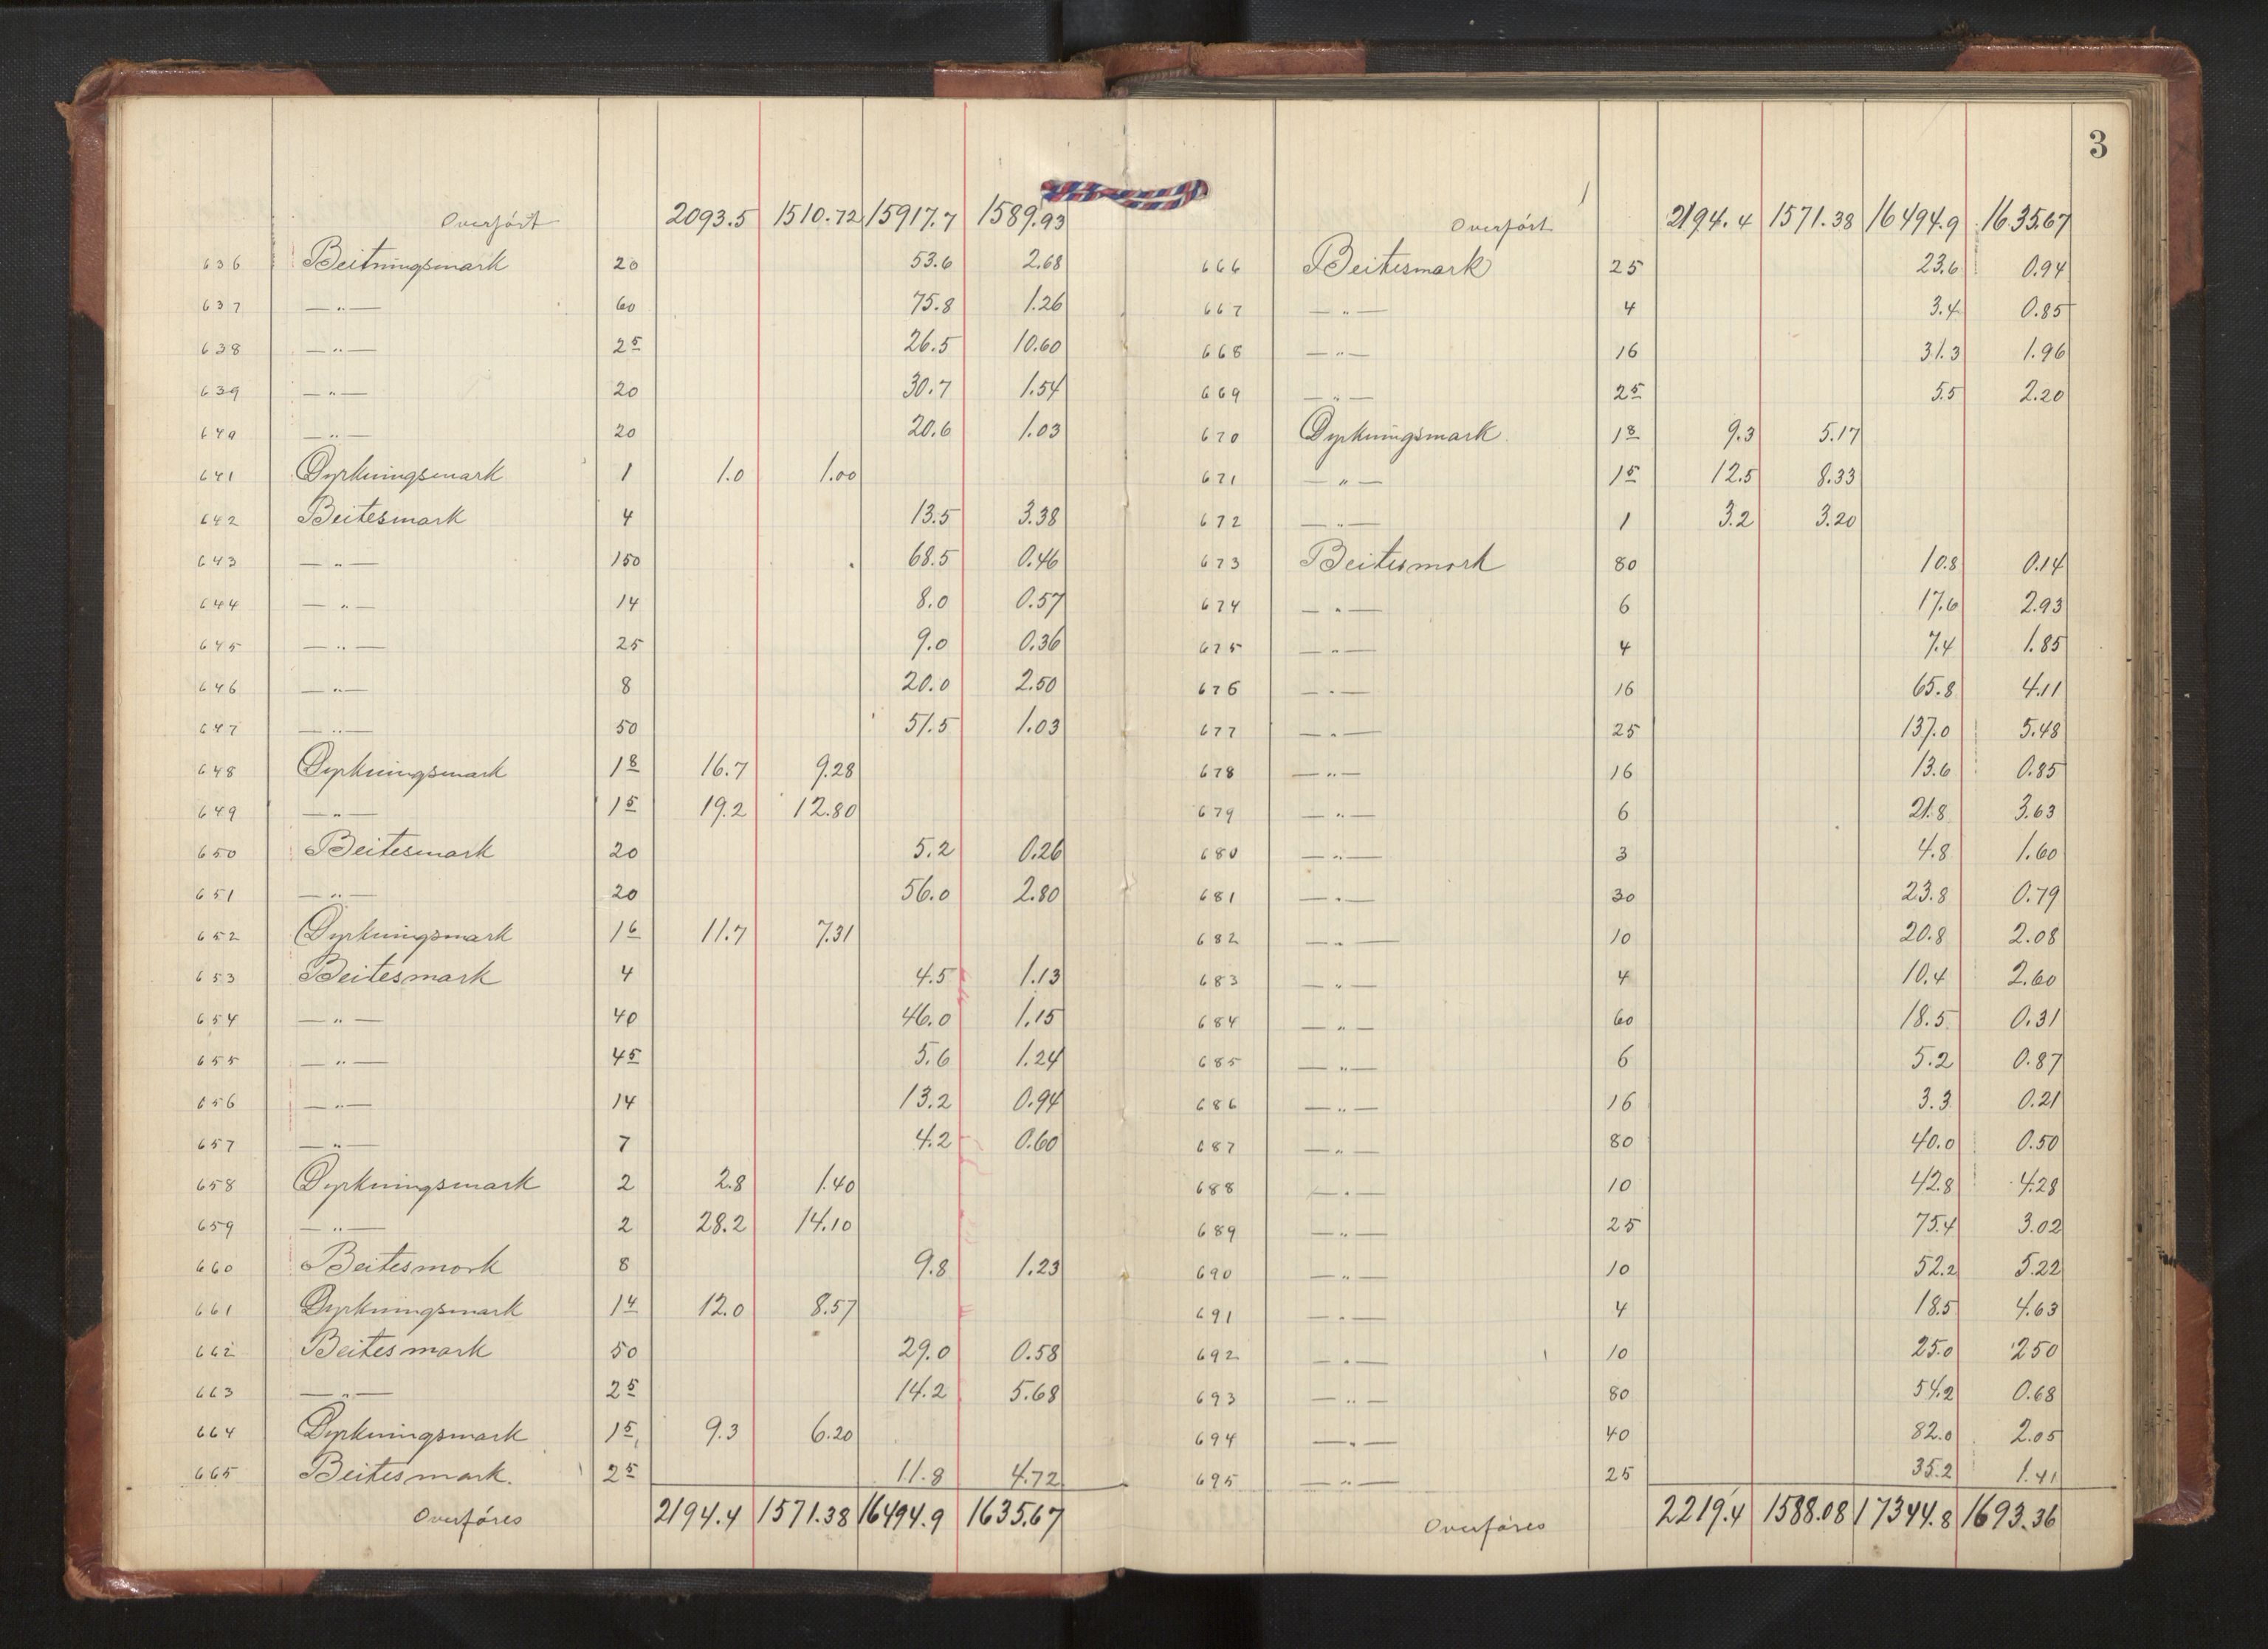 Overført 2093.5 1510.72 15917.7 1589.93
636 Beitningsmark 20 53.6 2.68
637 — " — 60 75.8 1.26
638 — " — 2 5 26.5 10.60
639 — " — 20 30.7 1.54
640 — " — 20 20.6 1.03
641 Dyrkningsmark 1 1.0 1.00
642 Beitesmark 4 13.5 3.38
643 — " — 150 68.5 0.46
644 — " — 14 8.0 0.57
645 — " — 25 9.0 0.36
646 — " — 8 20.0 2.50
647 — " — 50 51.5 1.03
648 Dyrkningsmark 1 8 16.7 9.28
649 — " — 1 5 19.2 12.80
650 Beitesmark 20 5.2 0.26
651 — " — 20 56.0 2.80
652 Dyrkningsmark 1 6 11.7 7.31
653 Beitesmark 4 4.5 1.13
654 — " — 40 46.0 1.15
655 — " — 4 5 5.6 1.24
656 — " — 14 13.2 0.94
657 — " — 7 4.2 0.60
658 Dyrkningsmark 2 2.8 1.40
659 — " — 2 28.2 14.10
660 Beitesmork 8 9.8 1.23
661 Dyrkningsmark 1 4 12.0 8.57
662 Beitesmark 50 29.0 0.58
663 — " — 2 5 14.2 5.68
664 Dyrkningsmark 1 5 9.3 6.20
665 Beitesmark. 2 5 11.8 4.72
Overføres 2194.4 1571.38 16494.9 1635.67
3
Overført 2194.4 1571.38 16494.9 1635.67
666 Beitesmark 25 23.6 0.94
667 — " — 4 3.4 0.85
668 — " — 16 31.3 1.96
669 — " — 2 5 5.5 2.20
670 Dyrkningsmark 1 8 9.3 5.17
671 — " — 1 5 12.5 8.33
672 — " — 1 3.2 3.20
673 Beitesmork 80 10.8 0.14
674 — " — 6 17.6 2.93
675 — " — 4 7.4 1.85
676 — " — 16 65.8 4.11
677 — " — 25 137.0 5.48
678 — " — 16 13.6 0.85
679 — " — 6 21.8 3.63
680 — " — 3 4.8 1.60
681 — " — 30 23.8 0.79
682 — " — 10 20.8 2.08
683 — " — 4 10.4 2.60
684 — " — 60 18.5 0.31
685 — " — 6 5.2 0.87
686 — " — 16 3.3 0.21
687 — " — 80 40.0 0.50
688 — " — 10 42.8 4.28
689 — " — 25 75.4 3.02
690 — " — 10 52.2 5.22
691 — " — 4 18.5 4.63
692 — " — 10 25.0 250
693 — " — 80 54.2 0.68
694 — " — 40 82.0 2.05
695 — " — 25 35.2 1.41
Overføres 2219.4 1588.08 17344.8 1693.36